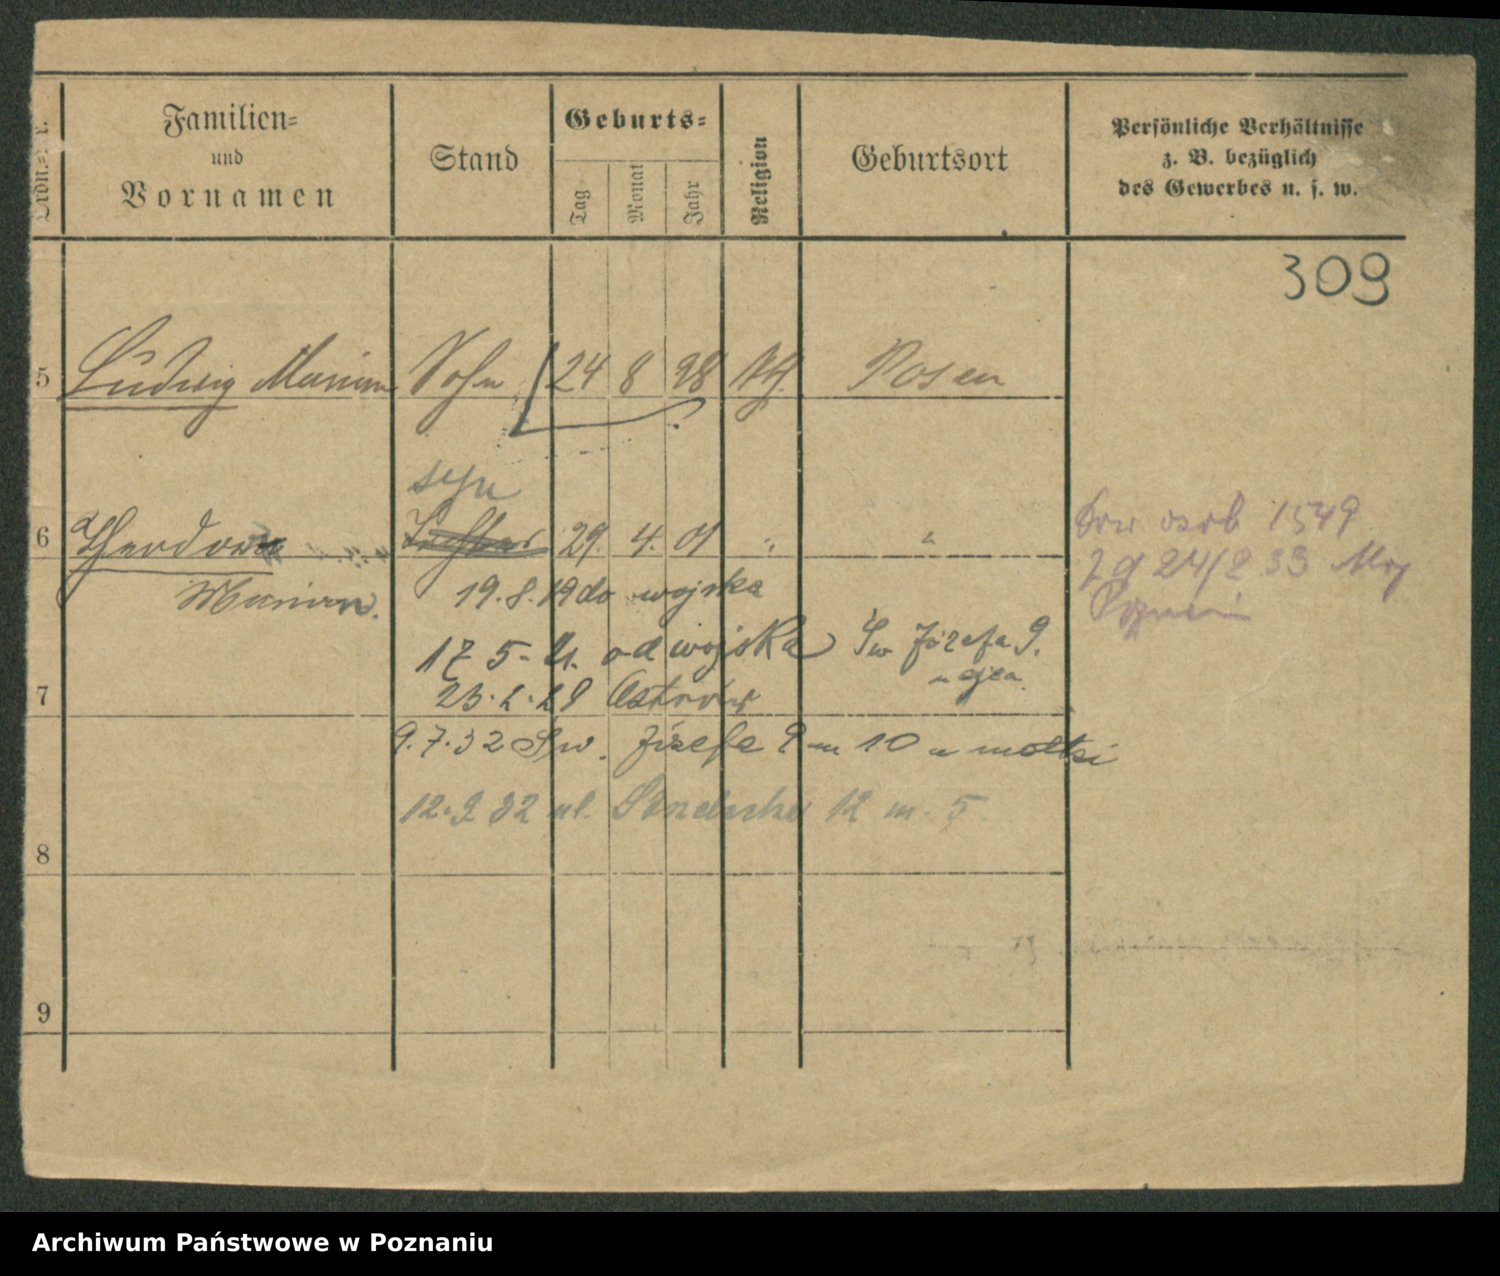 Familien=
und
Vornamen
Stand
Geburts=
Tag
Monat
Jahr
Religion
Geburtsort
Persönliche Verhältnisse
z. B. bezüglich
des Gewerbes u. s. w.
309
5 Ludwig Marian Sohn 24 8 98 Posen
syn
6 29. 4. 01 " "
Marian.
19.8.19 do wojska
17 5 - 21. od wojska Św Józefa 9.
u ojca
7 23.2.28
9.7.32 Św. Józefa 9 m 10 u matki
12.9 32 ul. 12 m. 5.
8
9
Dow osob 1549
24/2 33
Poznań
Archiwum Państwowe w Poznaniu